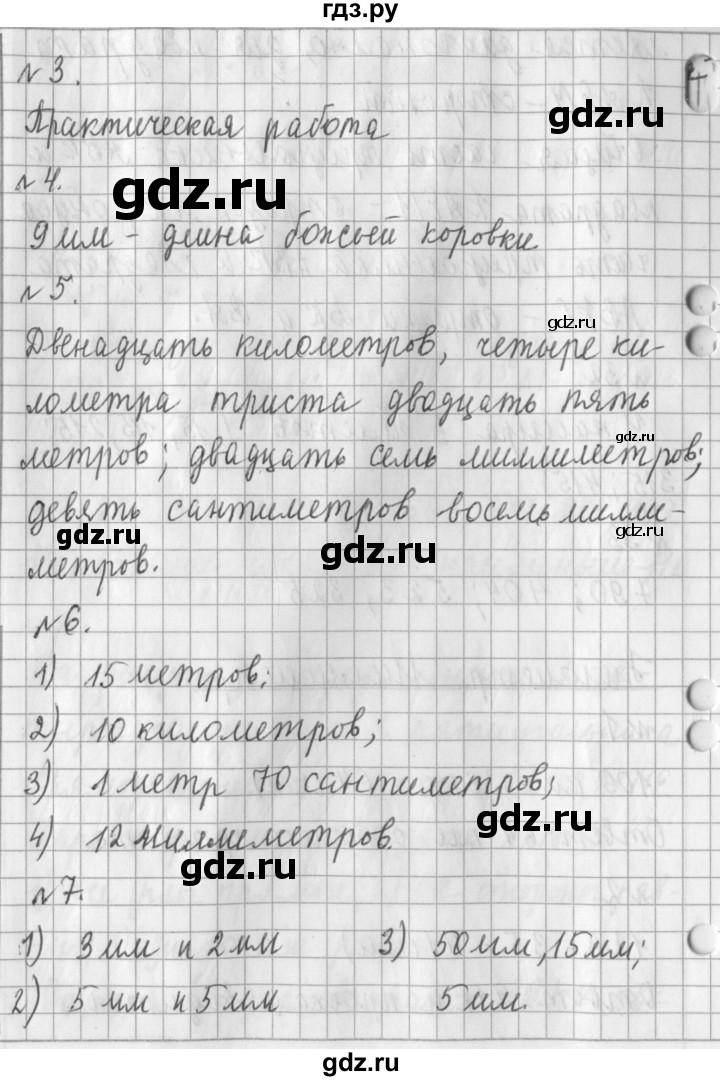 гдз.ру
№3.
Практическая работа
gdz.ru
№4.
gdz.ru
9 мм - длина божьей коровки.
№5.
gdz.ru
Двенадцать километров, четыре ки-
лометра триста двадцать пять
gdz.ru
метров; двадцать семь миллиметров;
девять сантиметров восемь милли-
gdz.ru
gdz.ru
gdz.ru
метров.
№6.
1) 15 метров;
2) 10 километров;
3) 1 метр 70 сантиметров;
gdz.ru
4) 12 миллиметров.
gdz.ru
№7.
1) 3 мм и 2 мм
3) 50 мм, 15 мм;
2) 5 мм и 5 мм
5 мм.
gdz.ru